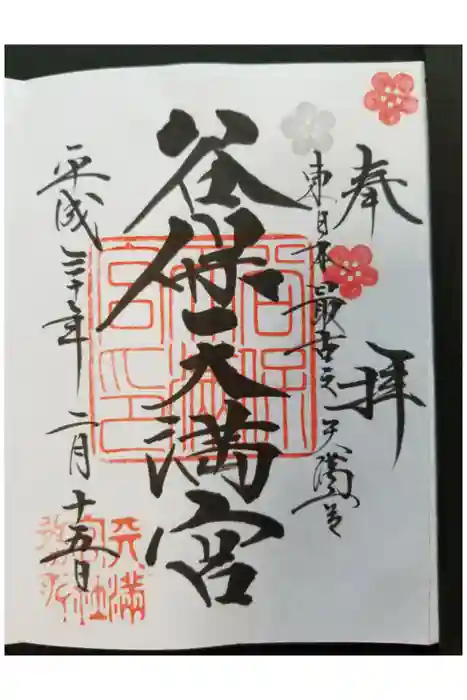 奉拝
東日本最古之天満宮
谷保天満宮
平成三十年二月十五日
谷保天満宮印